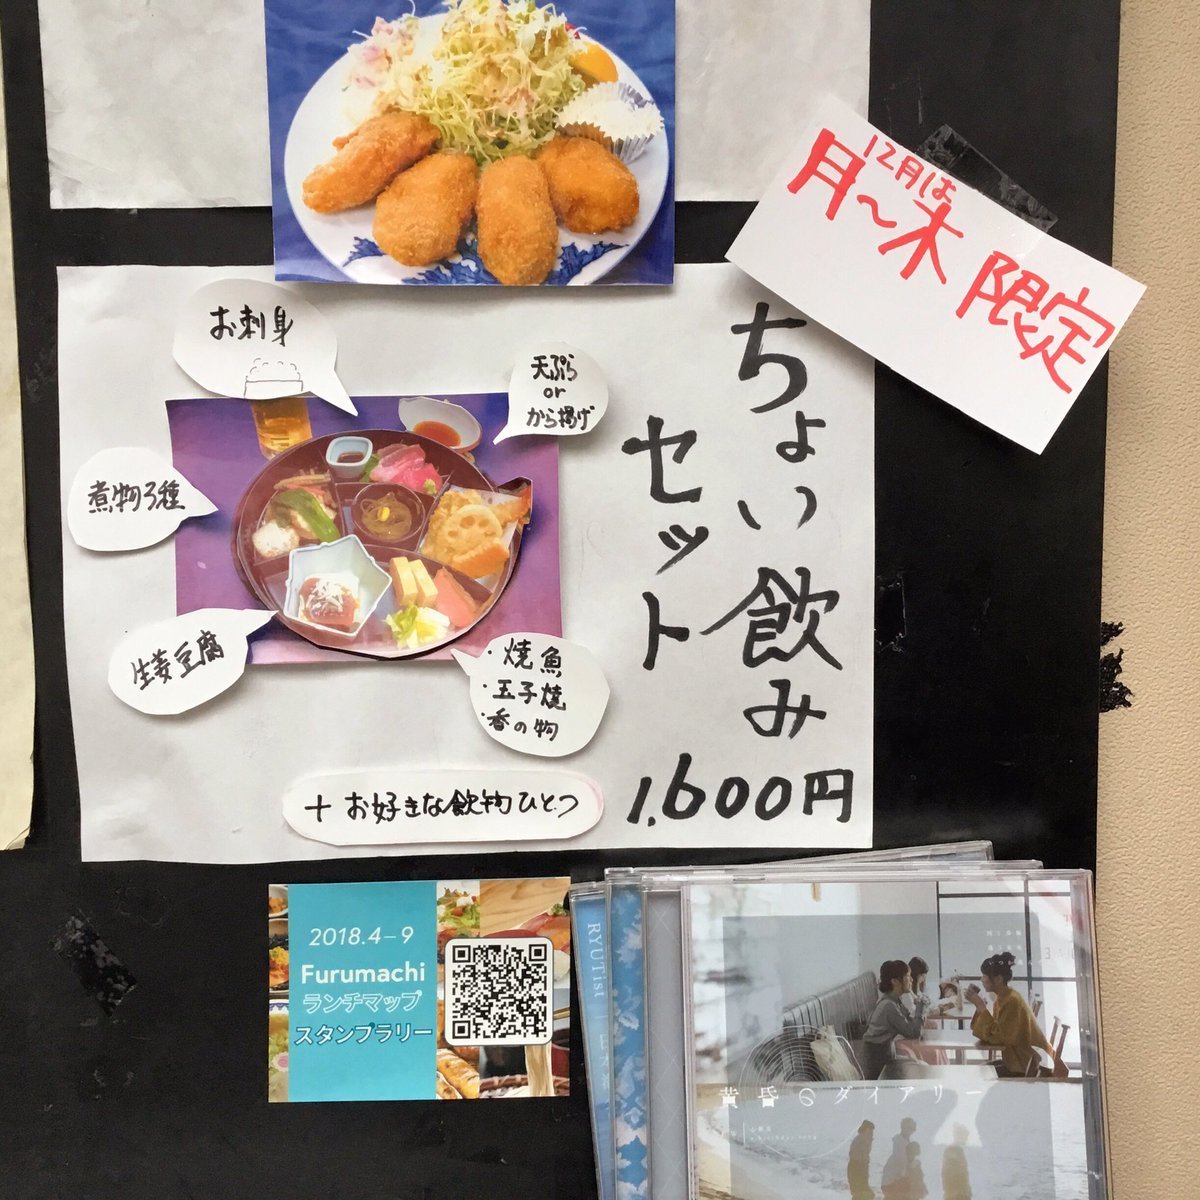 12月は
月〜木 限定
ちょい飲み
セット
1,600円
お刺身
天ぷら
or
から揚げ
煮物3種
生姜豆腐
・焼魚
・玉子焼
・香の物
+ お好きな飲物ひとつ
2018.4–9
Furumachi
ランチマップ
スタンプラリー
RYUTist
黄昏のダイアリー